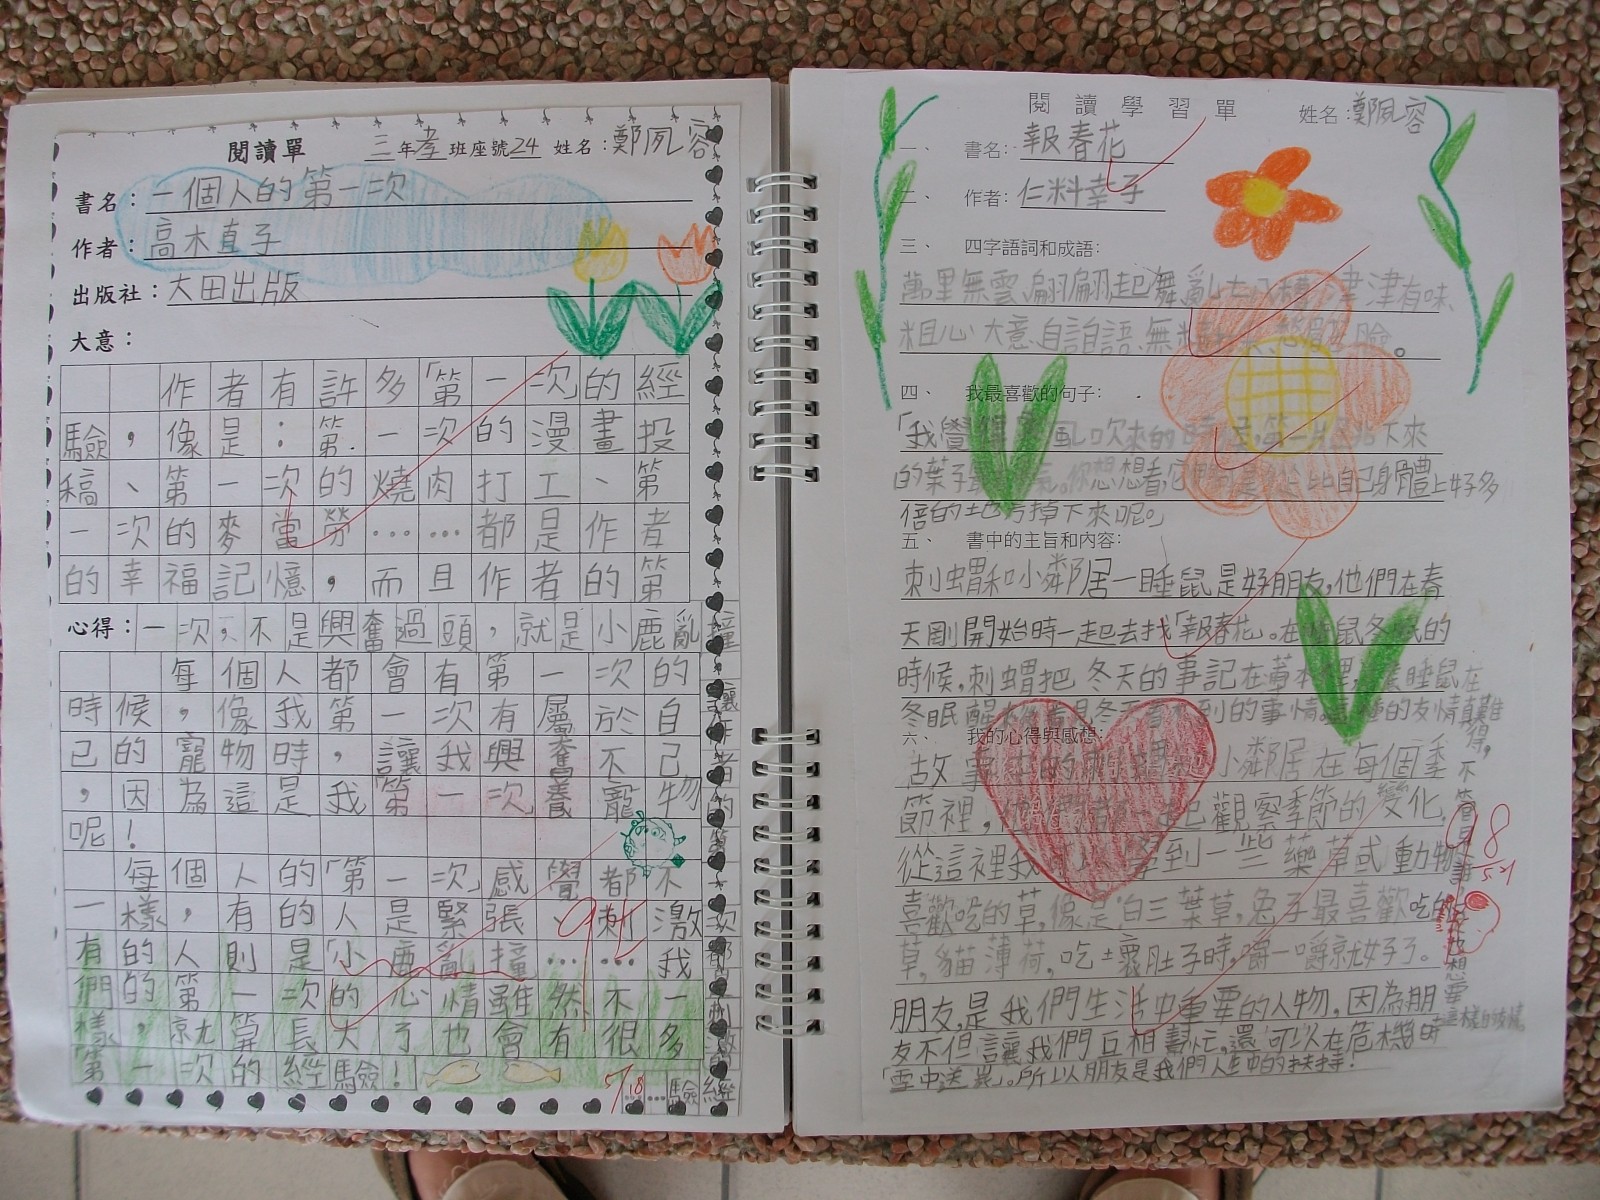 閱讀單 三年孝班座號24 姓名:鄭夙容
書名:一個人的第一次
作者:高木直子
出版社:大田出版
大意:
作者有許多「第一次的經
驗,像是:第一次的漫畫投
稿、第一次的燒肉打工、第
一次的麥當勞……都是作者
的幸福記憶,而且作者的第
心得:一次,不是興奮過頭,就是小鹿亂撞
每個人都會有第一次的
時候,像我第一次有屬於自
己的寵物時,讓我興奮不已
,因為這是我第一次養寵物
呢!
每個人的「第一次」感覺都不
一樣,有的人是緊張、刺激
有的人則是「小鹿亂撞……我
們的第一次的心情雖然不一
樣,就算長大了也會有很多
「第一次的經驗!
7/18
閱讀學習單 姓名:鄭夙容
一、 書名:報春花
二、 作者:仁科幸子
三、 四字語詞和成語:
萬里無雲、翩翩起舞、亂七八糟、津津有味、
粗心大意、自言自語、無
四、 我最喜歡的句子:
「我覺得 風吹來的時候,第一片 下來
的葉子最 氣。你想想看,它 比自己身體上好多
倍的地方掉下來呢。」
五、 書中的主旨和內容:
刺蝟和小鄰居—睡鼠是好朋友,他們在春
天剛開始時一起去找「報春花」。在睡鼠冬眠的
時候,刺蝟把冬天的事記在 裡, 睡鼠在
冬眠醒 到的事情。 的友情真難得,
六、 我的心得與感想:
故事 的 小鄰居在每個季
節裡, 一起觀察季節的變化,
從這裡我 學到一些藥草或動物
喜歡吃的草,像是:白三葉草,兔子最喜歡吃的
草,貓薄荷,吃壞肚子時,嚼一嚼就好了。
朋友,是我們生活中重要的人物,因為朋
友不但讓我們互相幫忙,還可以在危機時
「雪中送炭」。所以朋友是我們人生中的扶持!
98
5.21